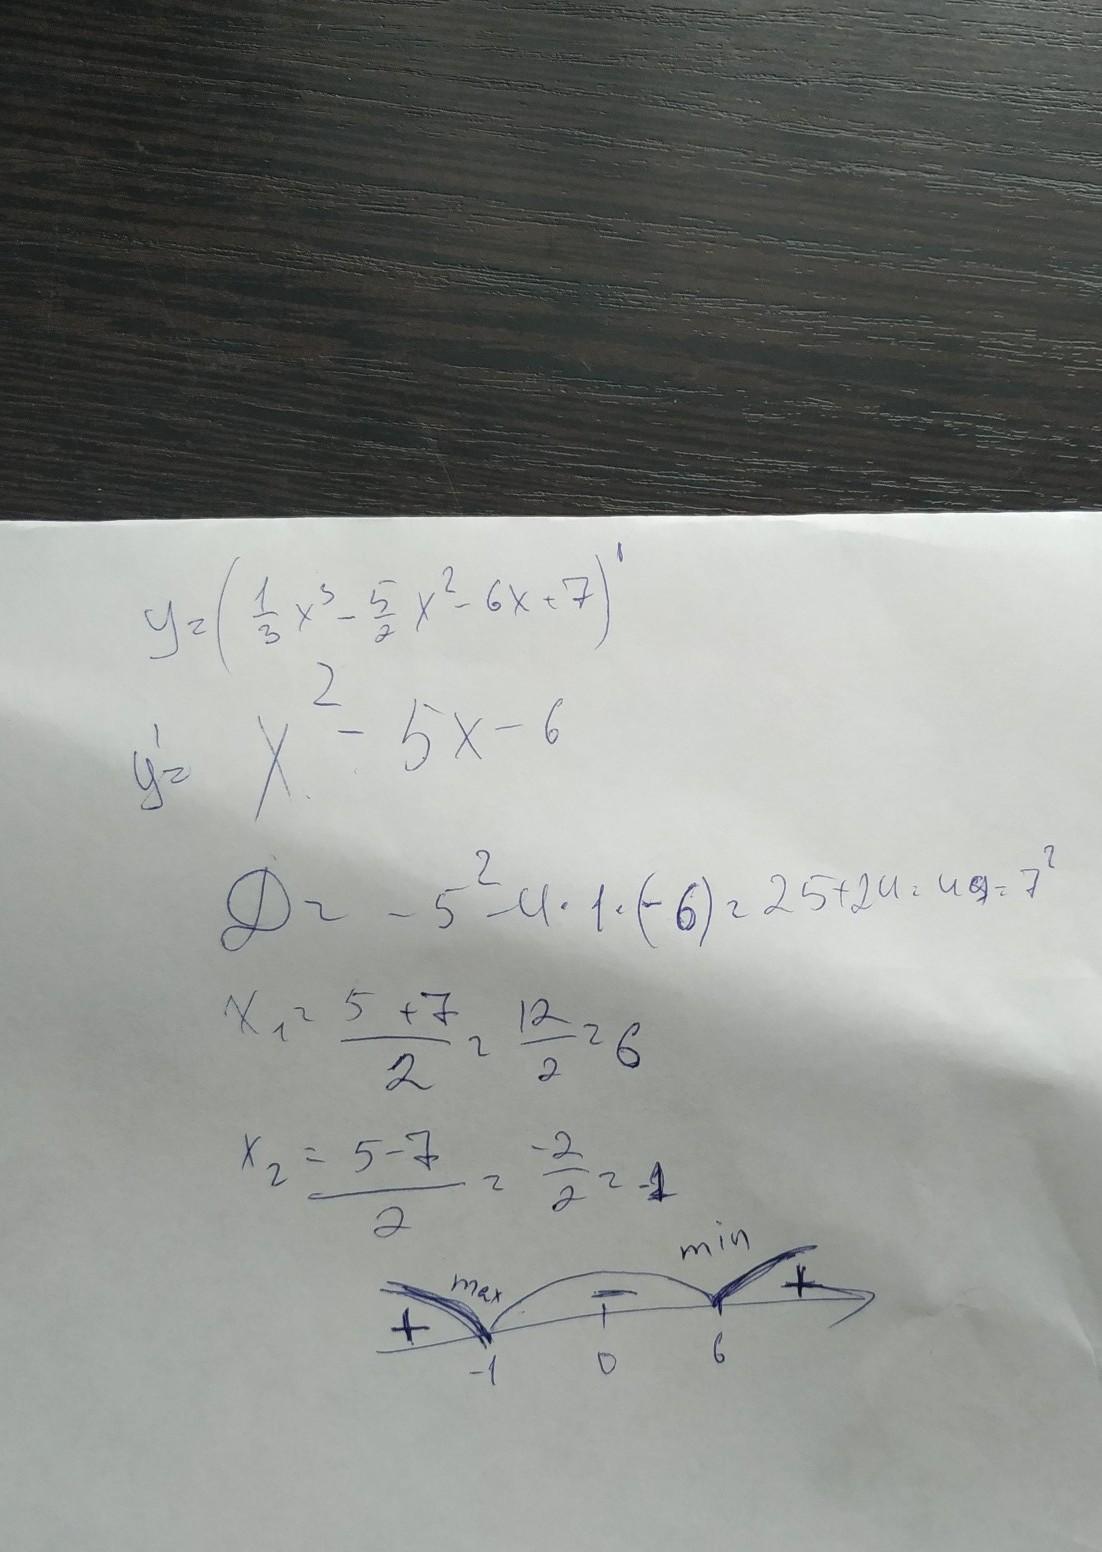 y=(1/3 x³ - 5/2 x² - 6x + 7)'
y'= x² - 5x - 6
D = -5² - 4·1·(-6) = 25+24 = 49 = 7²
x₁ = (5+7)/2 = 12/2 = 6
x₂ = (5-7)/2 = -2/2 = -1
max min
+ - +
-1 0 6